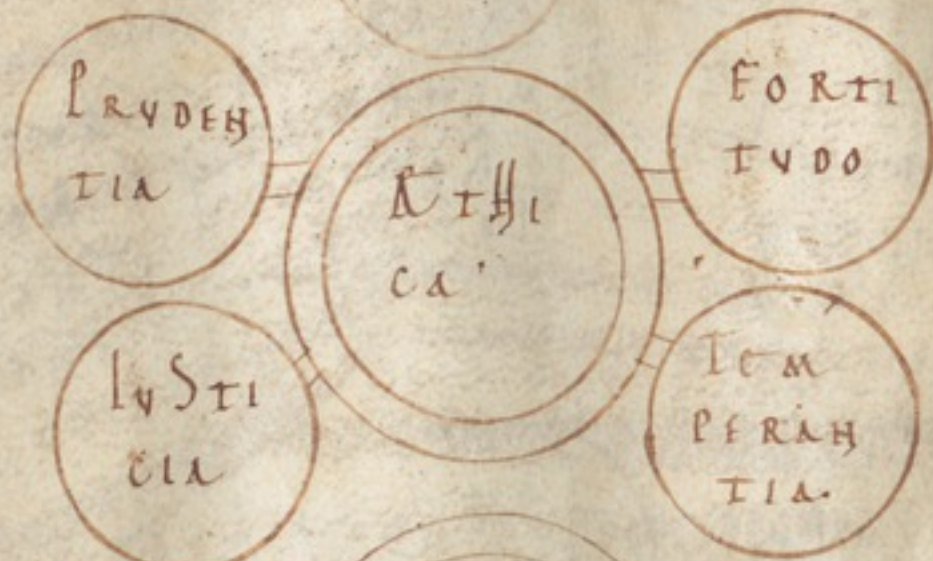 PRVDEN
TIA
AETHI
CA
FORTI
TVDO
IVSTI
CIA
TEM
PERAN
TIA.